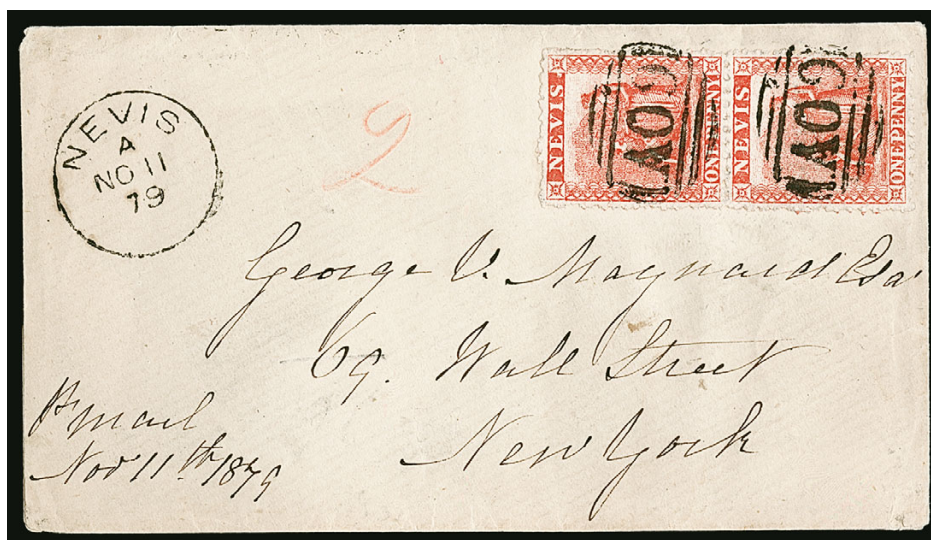 NEVIS
A
NO 11
79
2
NEVIS
ONE PENNY
A09
NEVIS
ONE PENNY
A09
George V. Maynard Esqr
69. Wall Street
New York
Pr mail
Novr 11th 1879